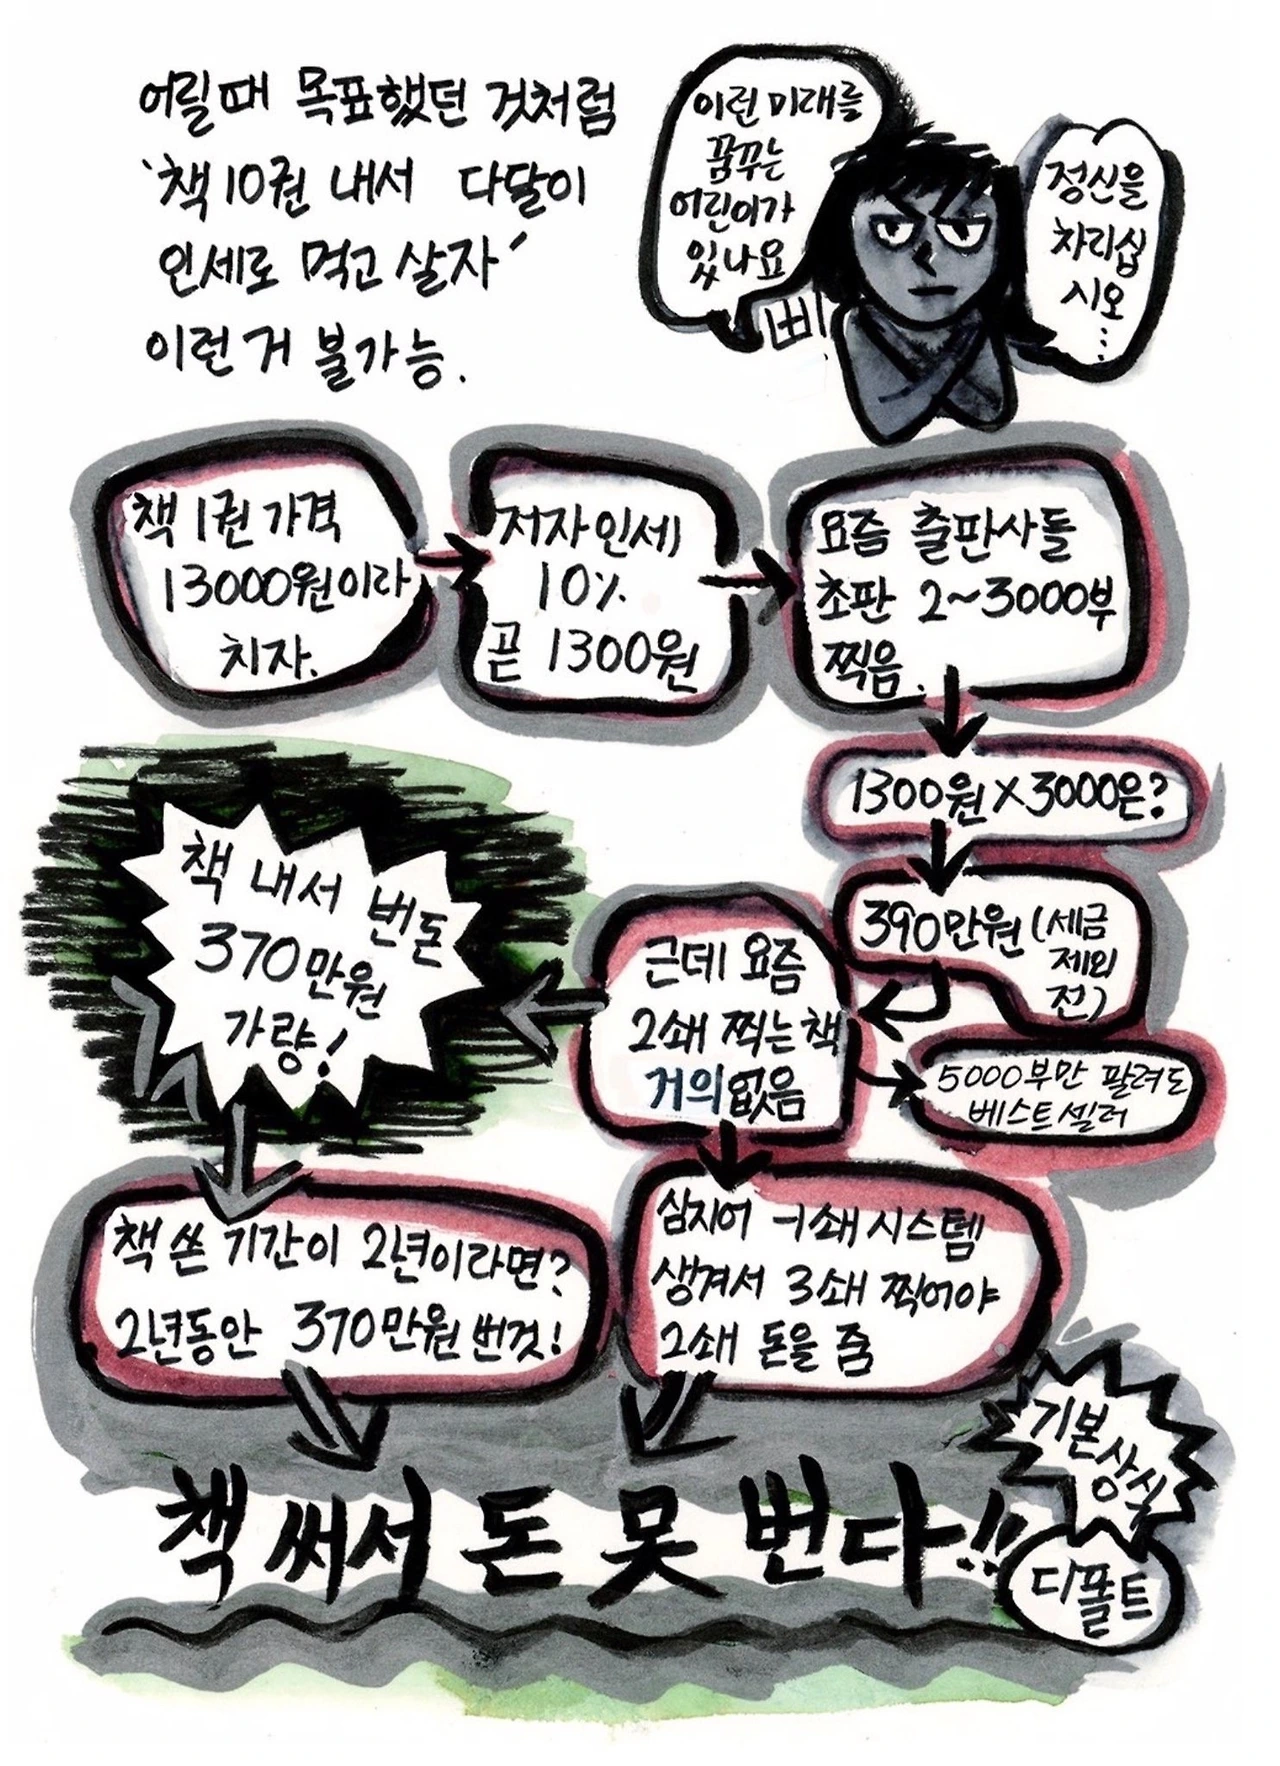 어릴때 목표했던 것처럼
'책 10권 내서 다달이
인세로 먹고 살자'
이런 거 불가능.
이런 미래를
꿈꾸는
어린이가
있나요
삐!
정신을
차리십
시오
...
책 1권 가격
13000원이라
치자.
저자인세
10%
곧 1300원
요즘 출판사들
초판 2~3000부
찍음.
1300원 X 3000은?
390만원 (세금
제외
전)
근데 요즘
2쇄 찍는 책
거의없음
5000부만 팔려도
베스트셀러
책 내서 번돈
370만원
가량!
책 쓴 기간이 2년이라면?
2년동안 370만원 번것!
심지어 -1쇄 시스템
생겨서 3쇄 찍어야
2쇄 돈을 줌
책 써서 돈 못 번다!!
기본
상식
디폴트